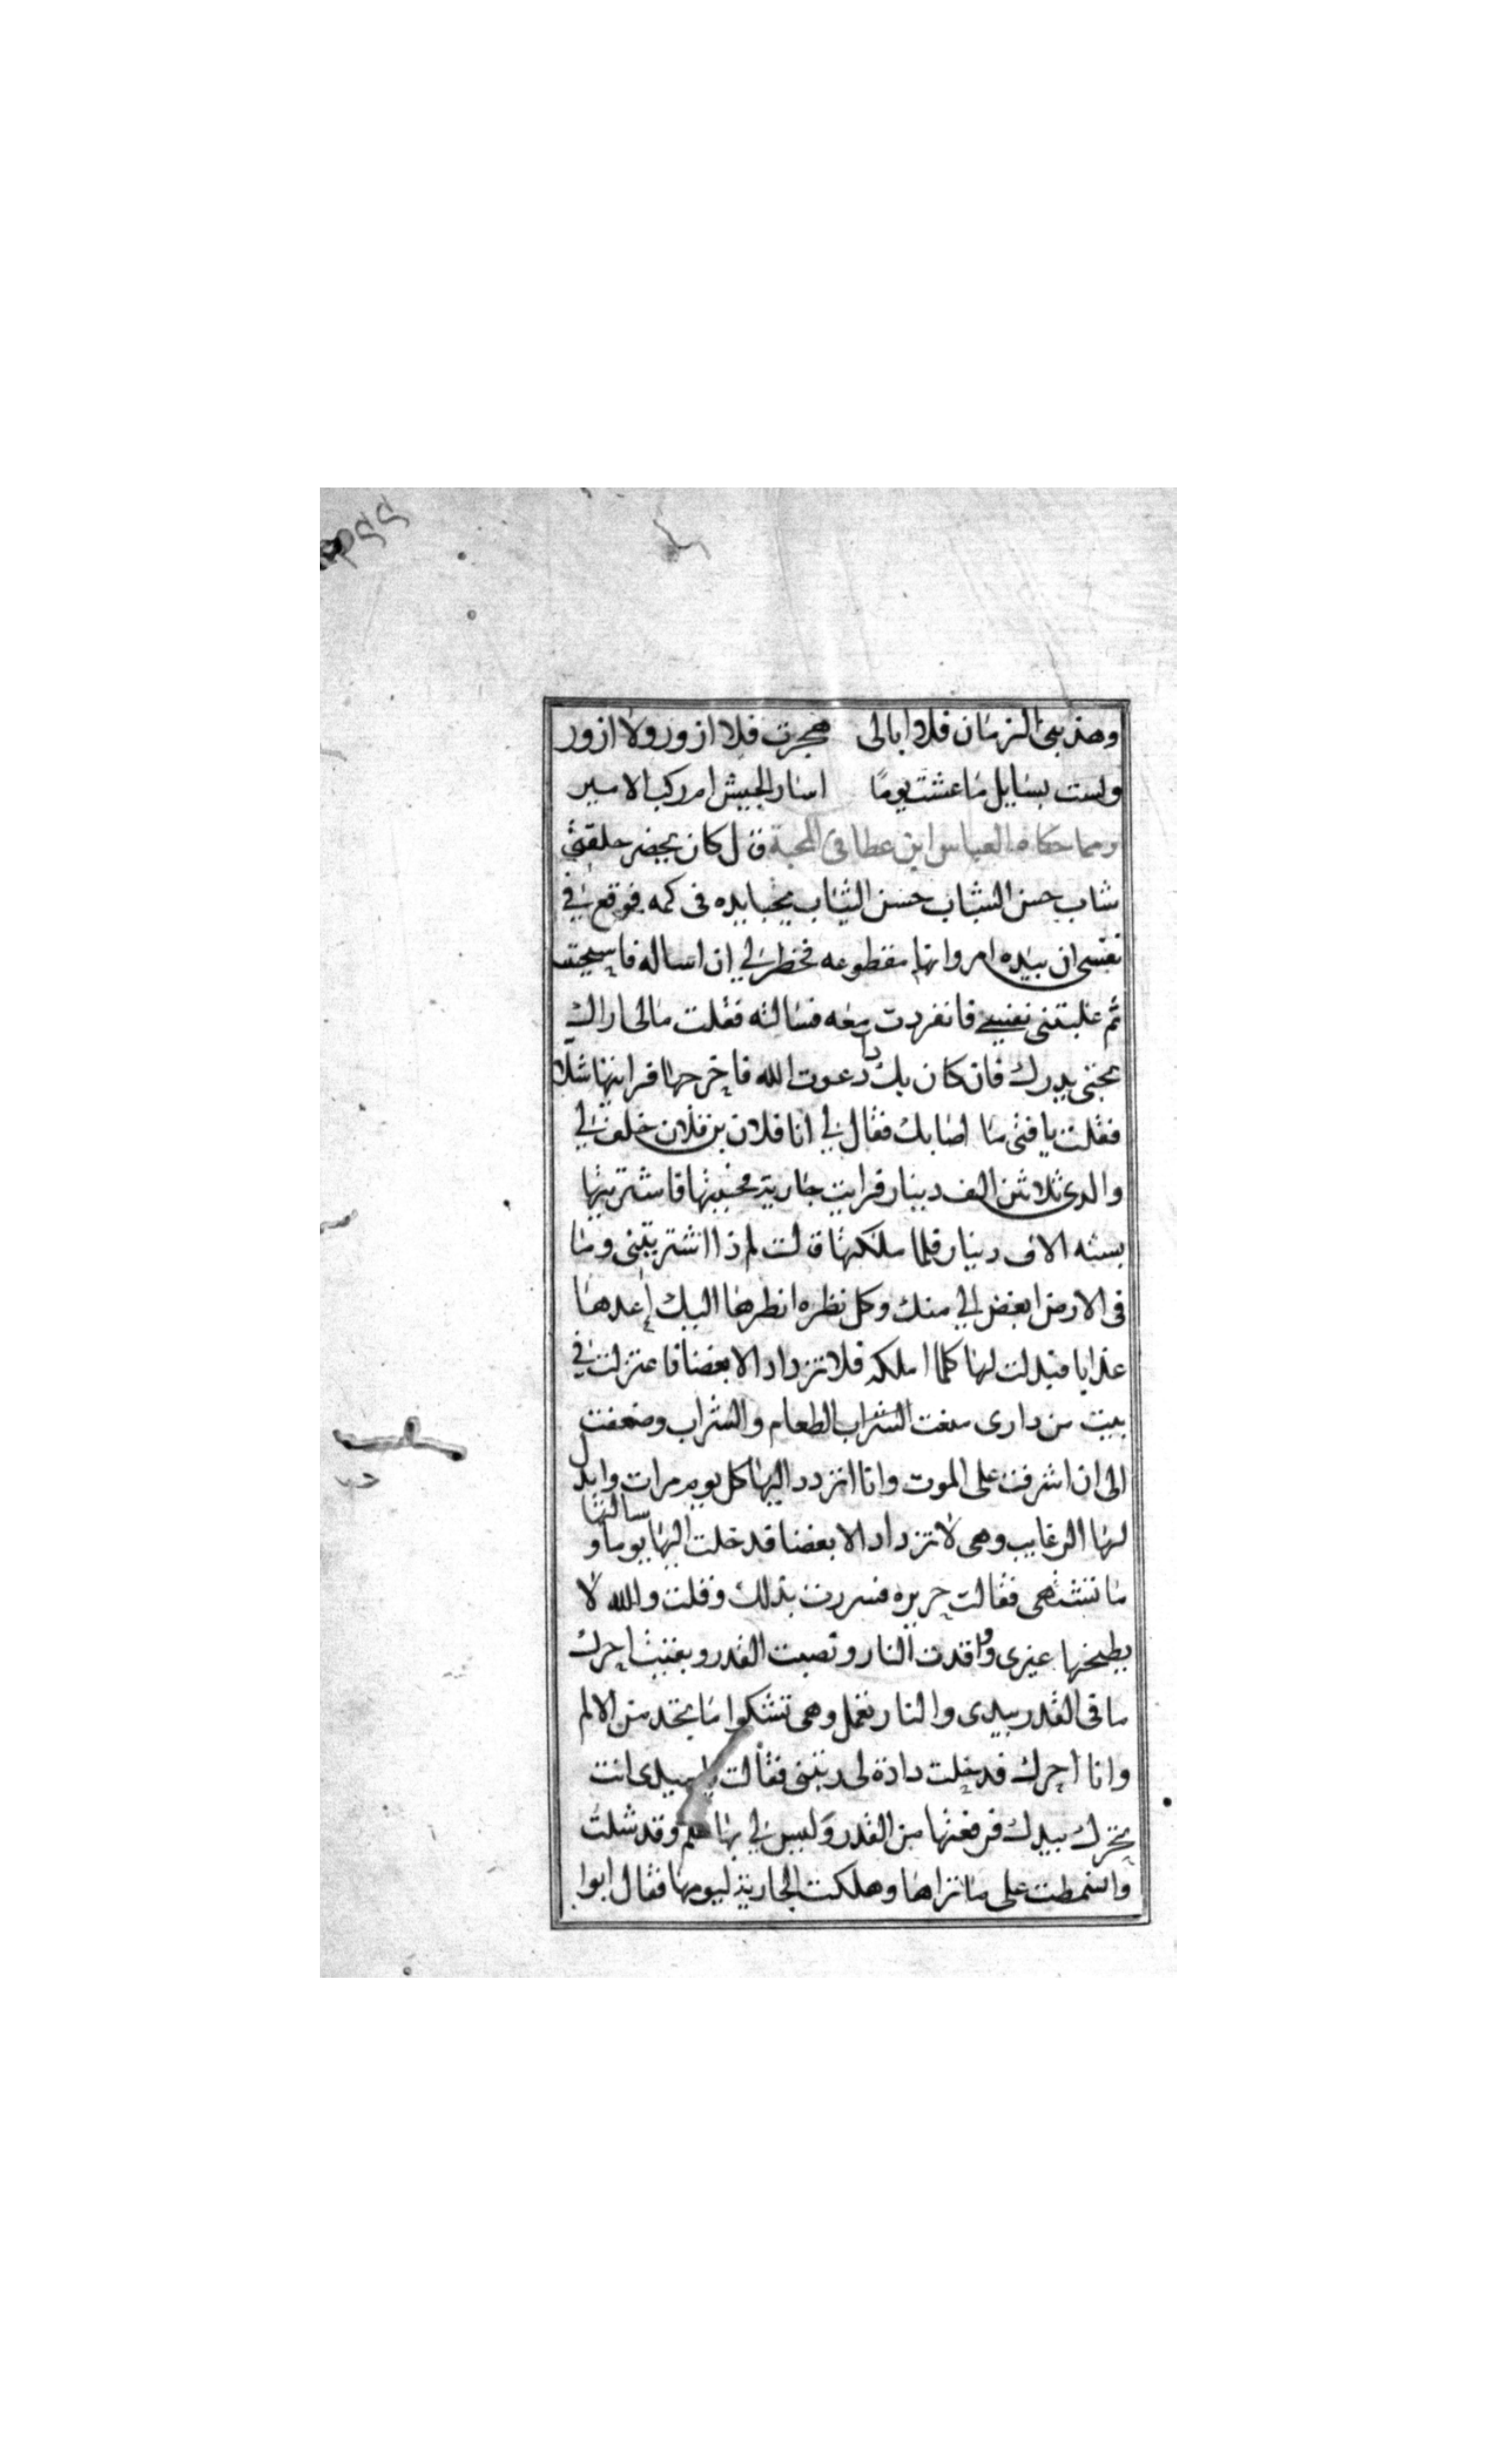 وهذبنى الزمان فلا ابالى هجرت فلا ازور ولا ازور
ولست بسايل ما عشت يومًا اسار الجيش ام ركب الامير
ومما حكاه العباس ابن عطا فى المحبة قال كان يحضر حلقتى
شاب حسن الشباب حسن الثياب يخبا يده فى كمه فوقع فى
نفسى ان بيده امر وانها مقطوعه فخطر لي ان اساله فاسحيت
ثم غلبتنى نفسي فانفردت معه فسالته فقلت مالى اراك
تخبى يدرك فان كان بك دا دعوت الله فاخرجها فرايتها شلا
فقلت يا فتى ما اصابك فقال لي انا فلان بن فلان خلف لي
والدى ثلاثين الف دينار فرايت جارية فحببتها فاشتريتها
بسته الاف دينار فلما ملكتها قالت لم ذا اشتريتنى وما
فى الارض ابغض الي منك وكل نظره انظرها اليك اعدها
عذابا فبدلت لها كلما املكه فلا تزداد الا بغضا فاعتزلت في
بيت من دارى منعت الشراب الطعام والشراب وضعفت
الى ان اشرفت على الموت وانا اتردد اليها كل يوم مرات وابدل
لها الرغايب وهى لا تزداد الا بغضا فدخلت اليها يوما وسالتها
ما تشتهى فقالت حريره فسررت بذلك وقلت والله لا
يطبخها غيرى واوقدت النار ونصبت القدر وبقيت احرك
ما فى القدر بيدى والنار تعمل وهى تشكوا ما تجد من الالم
وانا احرك فدخلت دادة لى ربتنى فقالت يا سيدى انت
تحرك بيدك فرفعتها من القدر وليس لي بها علم وقد شلت
وانسمطت على ما تراها وهلكت الجارية ليومها فقال ابوا